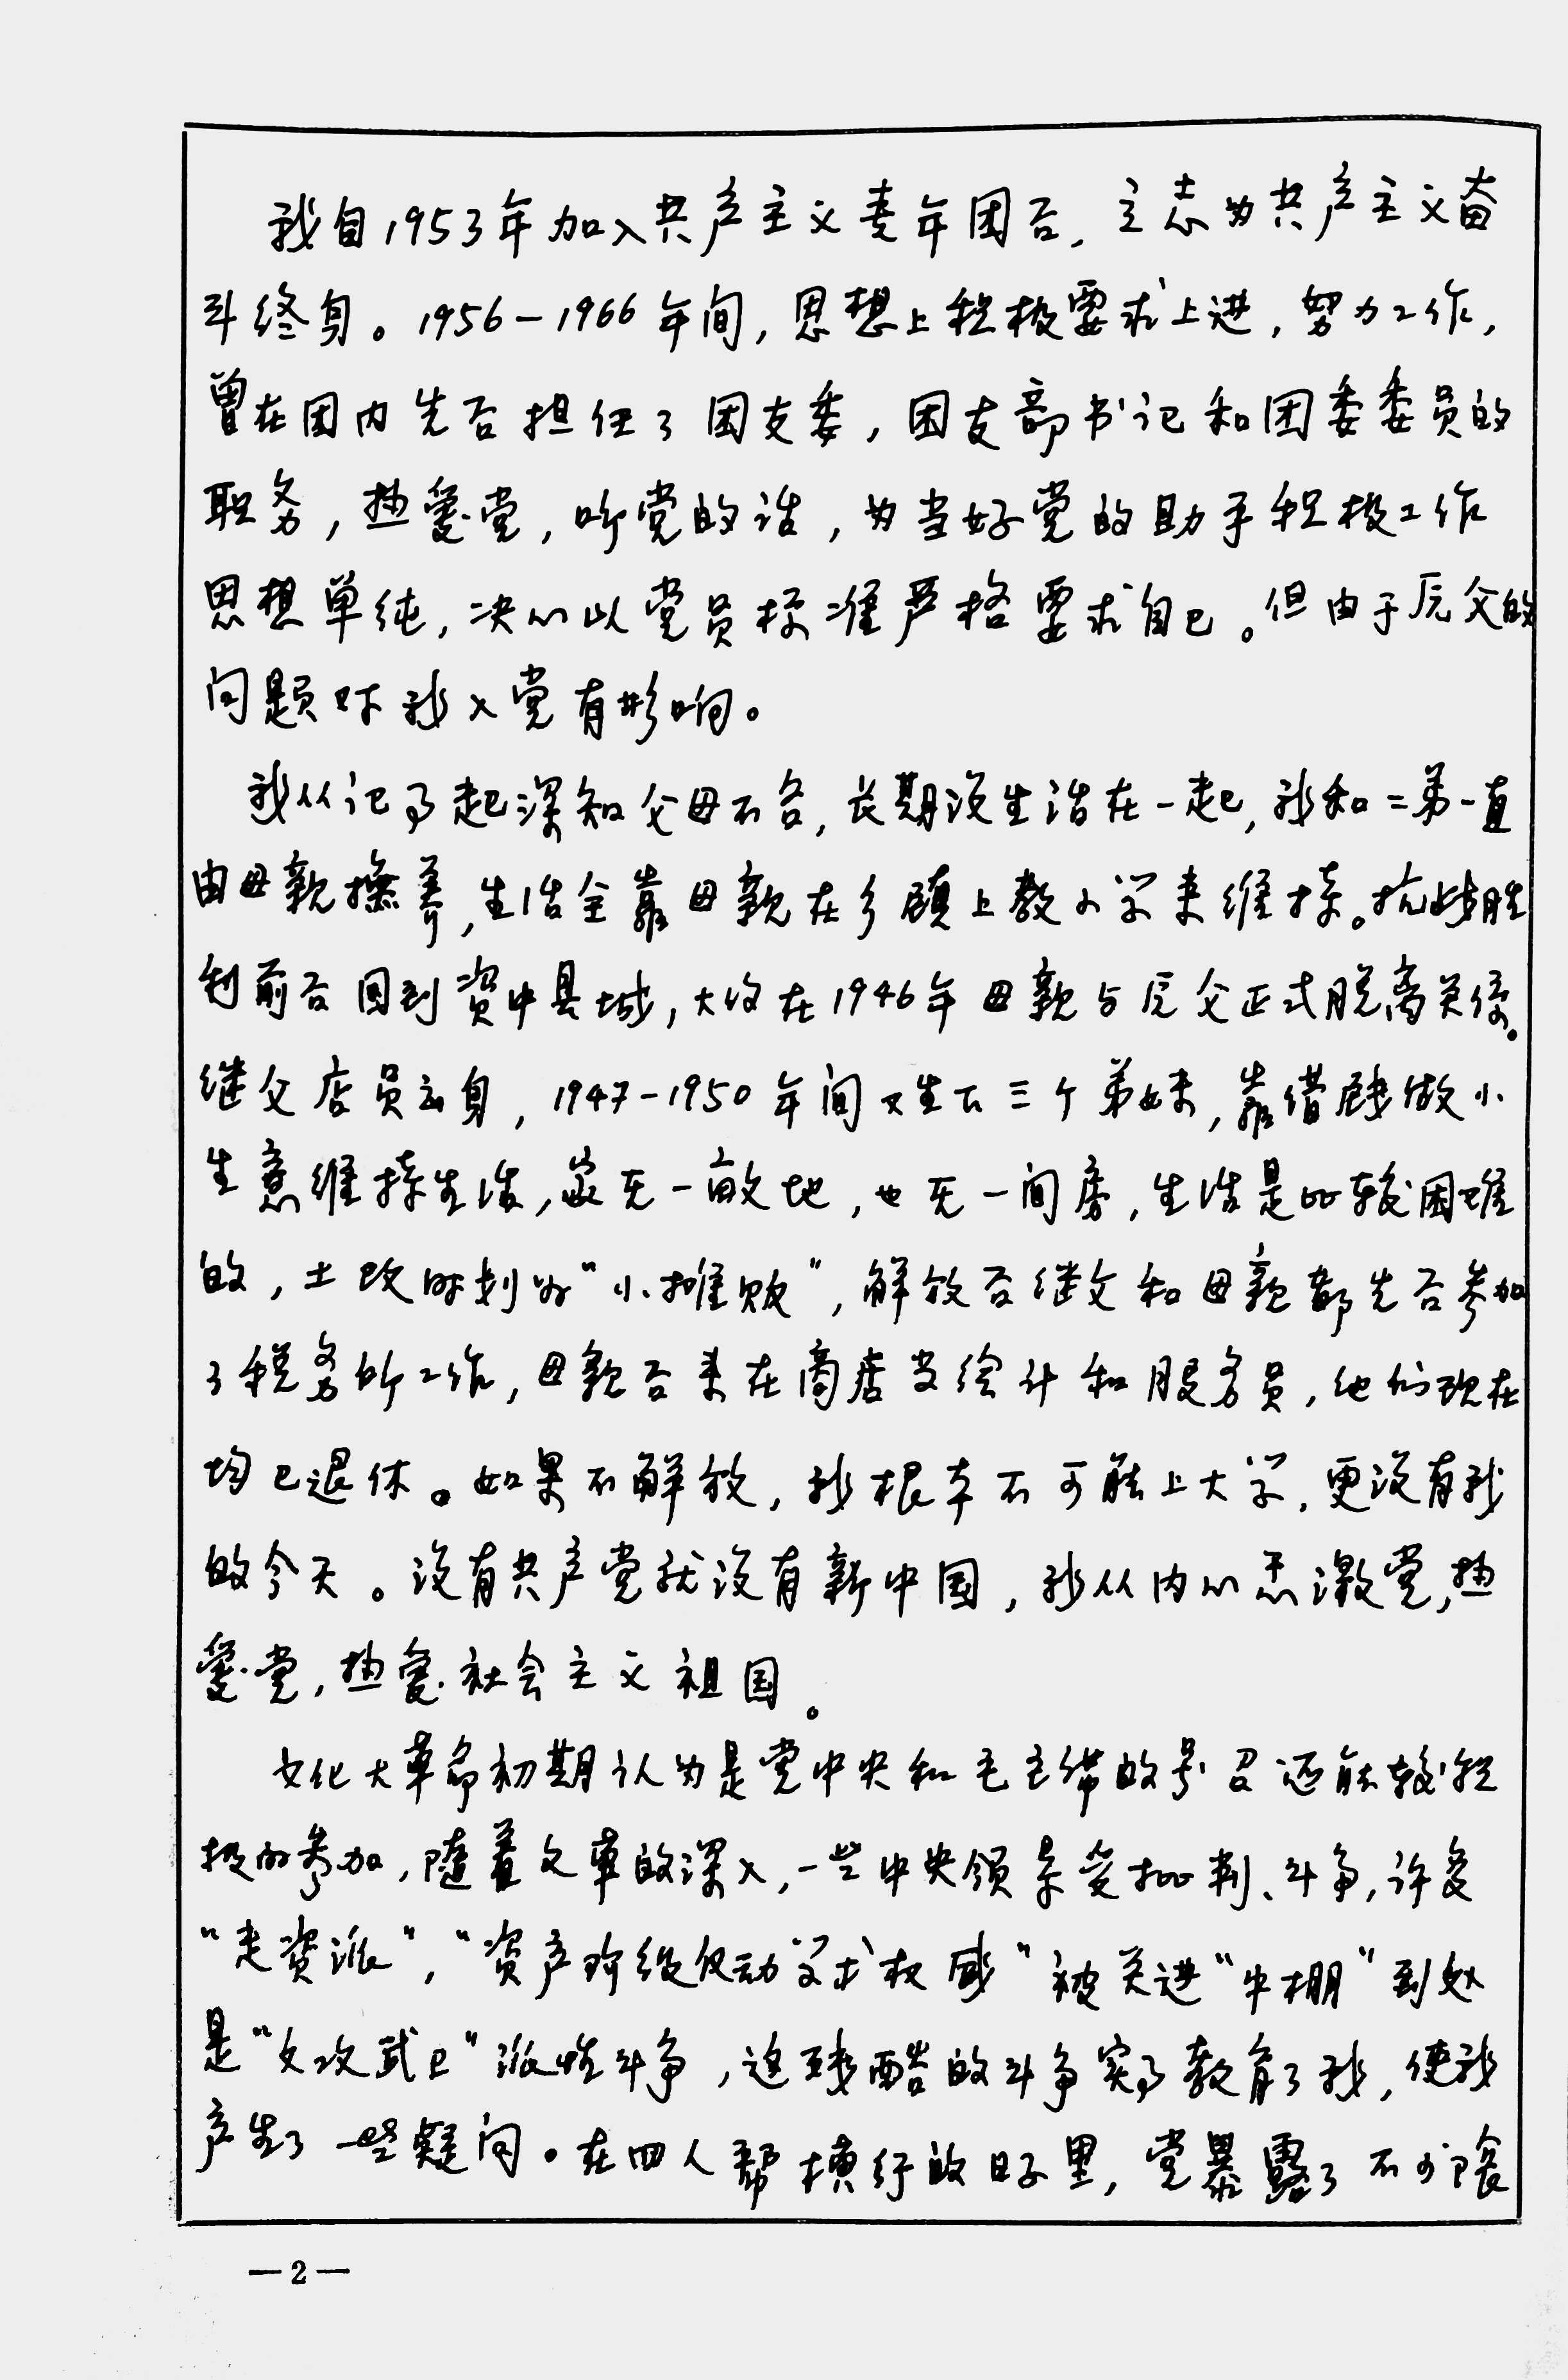 我自1953年加入共产主义青年团后，立志为共产主义奋
斗终身。1956－1966年间，思想上积极要求上进，努力工作，
曾在团内先后担任了团支委，团支部书记和团委委员的
职务，热爱党，听党的话，为当好党的助手积极工作
思想单纯，决心以党员标准严格要求自己。但由于后父的
问题对我入党有影响。
我从记事起深知父母不合，长期没生活在一起，我和二弟一直
由母亲抚养，生活全靠母亲在乡镇上教小学来维持。抗战胜
利前后回到资中县城，大约在1946年母亲与后父正式脱离关系。
继父店员出身，1947-1950年间又生下三个弟妹，靠借钱做小
生意维持生活，家无一亩地，也无一间房，生活是比较困难
的，土改时划为“小摊贩”，解放后继父和母亲都先后参加
了税务所工作，母亲后来在商店当会计和服务员，他们现在
均已退休。如果不解放，我根本不可能上大学，更没有我
的今天。没有共产党就没有新中国，我从内心感激党，热
爱党，热爱社会主义祖国。
文化大革命初期认为是党中央和毛主席的号召还能较积
极的参加，随着文革的深入，一些中央领导受批判、斗争，许多
“走资派”，“资产阶级反动学术权威”被关进“牛棚”到处
是“文攻武卫”派性斗争，这残酷的斗争实事教育了我，使我
产生了一些疑问。在四人帮横行的日子里，党暴露了不少阴暗
—2—